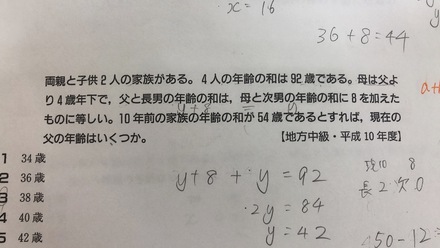 x = 16
36 + 8 = 44
両親と子供2人の家族がある。4人の年齢の和は92歳である。母は父よ
り4歳年下で，父と長男の年齢の和は，母と次男の年齢の和に8を加えた
ものに等しい。10年前の家族の年齢の和が54歳であるとすれば，現在の
父の年齢はいくつか。 【地方中級・平成10年度】
1 34歳
2 36歳
3 38歳
4 40歳
5 42歳
y+8 + y = 92
2y = 84
y = 42
現10 8
長2 次0
50-12=